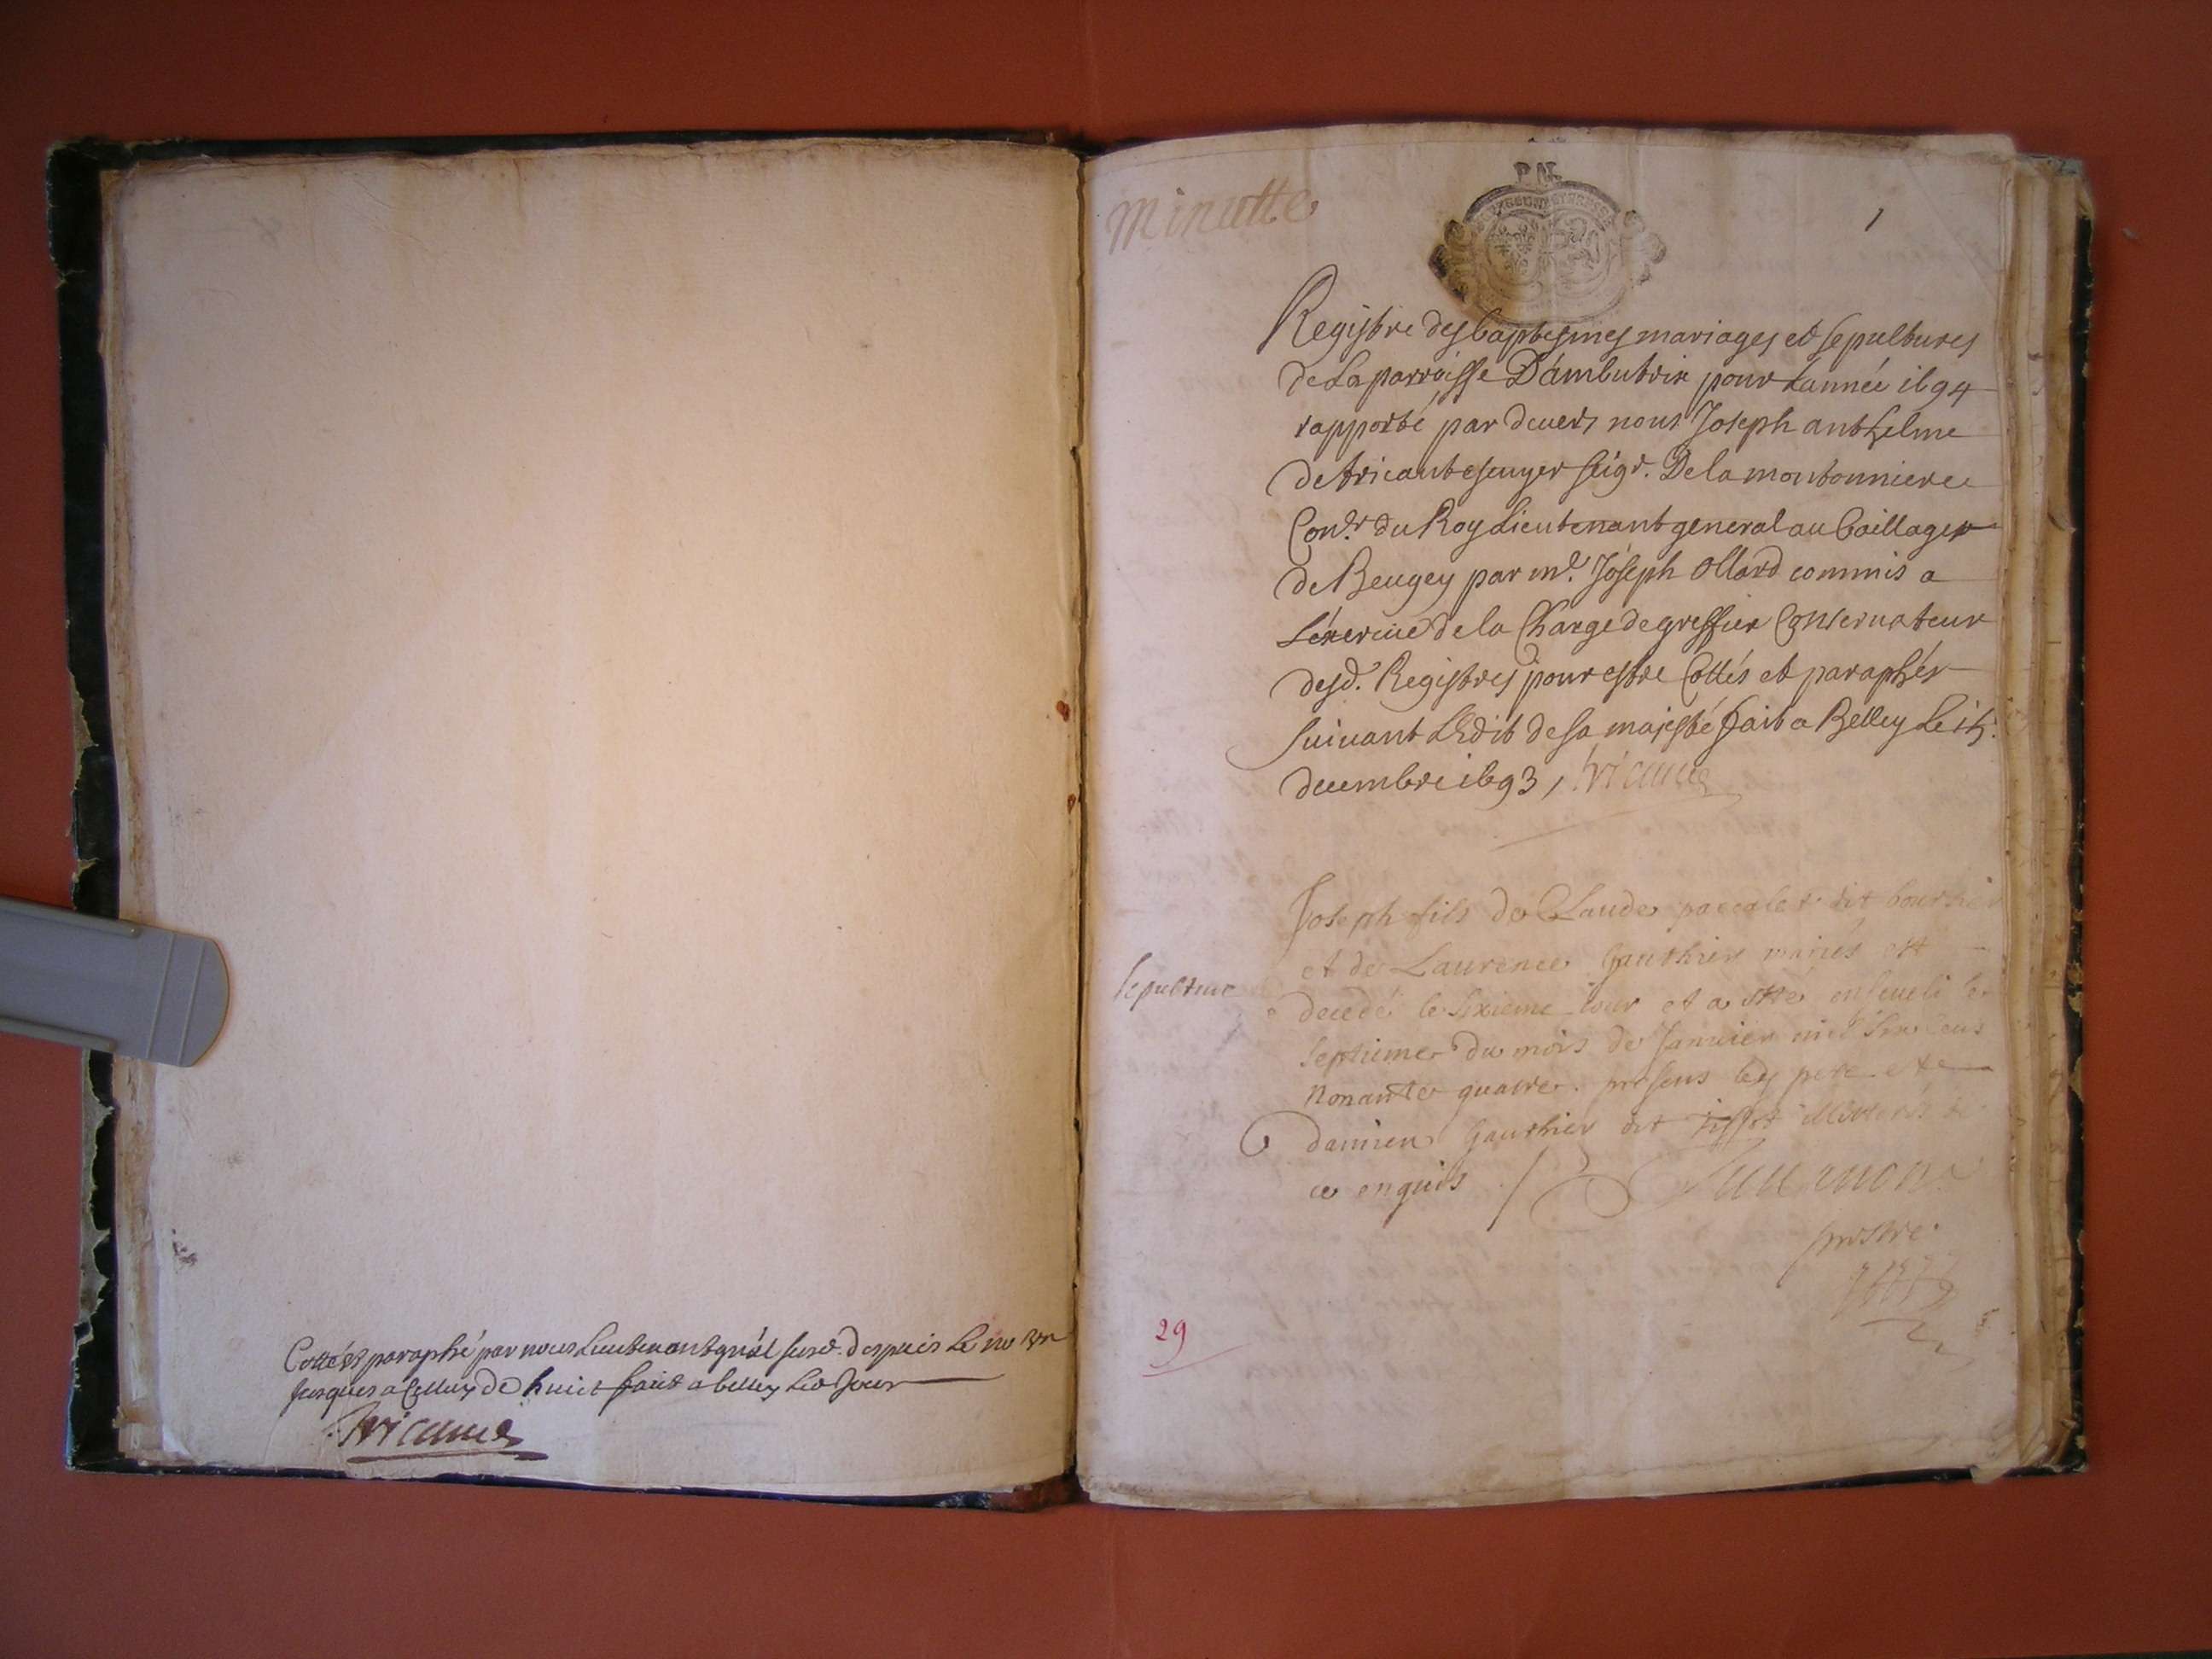 Cotté et paraphé par nous Lieutenant gnâl susd. despuis Le no un
Jusques a Celluy de huict fait a belley Led Jour
Tricaud
Minutte
P. N.
1
Registre des baptesmes mariages et sepultures
de La parroisse D'ambutrix pour Lannée 1694
rapporté par devers nous Joseph anthelme
de tricaut escuyer seigr. De la montonniere
Coner. du Roy Lieutenant general au baillage
de Beugey par me. Joseph Ollard commis a
Lexercice de la Charge de greffier Conservateur
desd. Registres pour estre Cottés et paraphés
suivant L'Edit de sa majesté fait a Belley Le 15.
decembre 1693, Tricaud
sepulture
Joseph fils de Claude dit
et de Laurence Gauthier mariés est
decedé le sixieme jour et a esté enseveli le
septieme du mois de Janvier mil six cens
nonante quatre. presens les pere et
damien Gauthier dit illiterés de
ce enquis
prestre
29